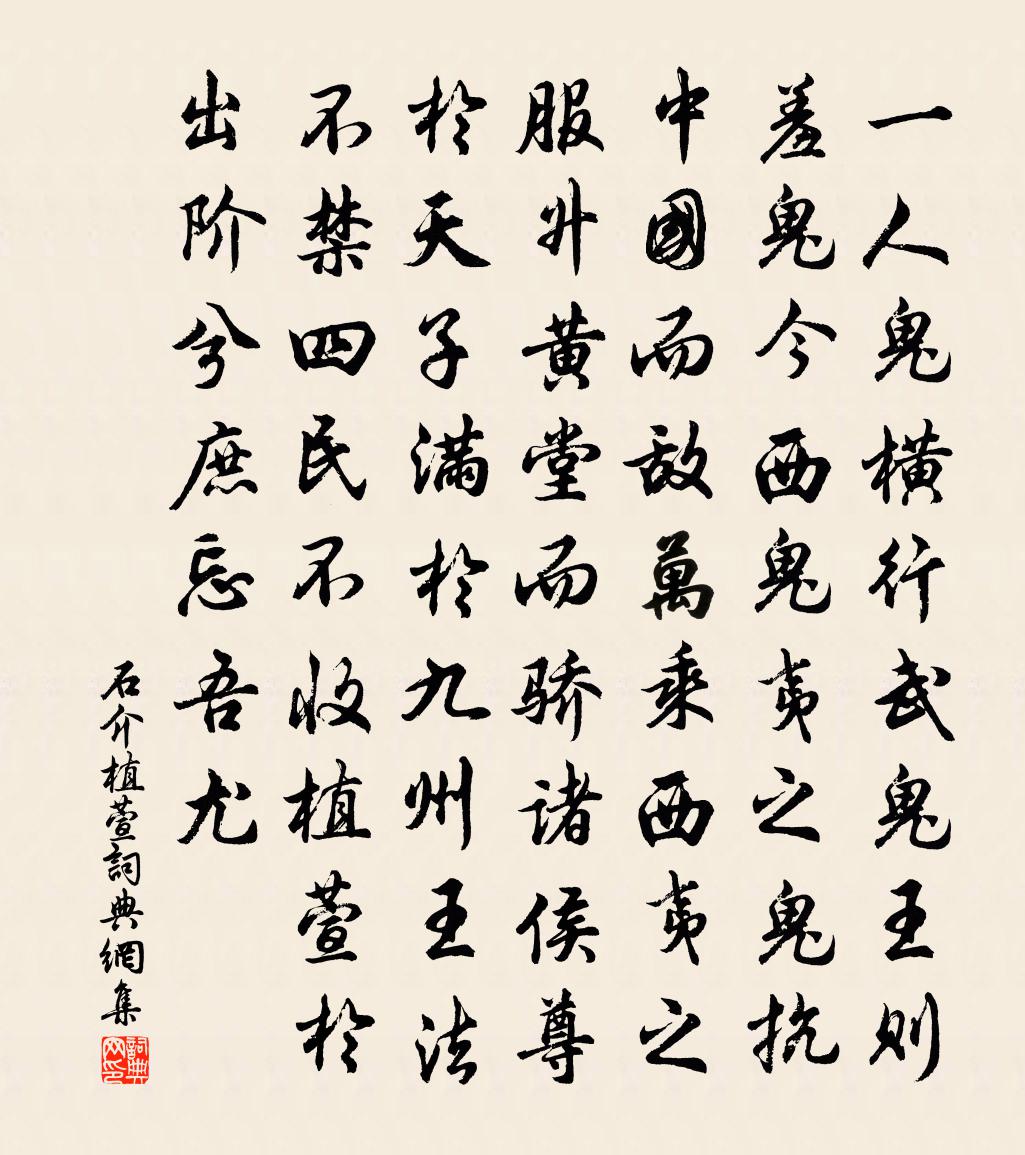 一人鬼橫行武鬼王则
羞鬼今西鬼夷之鬼抗
中國而敌萬乘西夷之
服升黄堂而骄诸侯尊
於天子滿於九州王法
不禁四民不收植萱於
出阶兮庶忘吾尤
石介植萱詞典網集
詞典网印